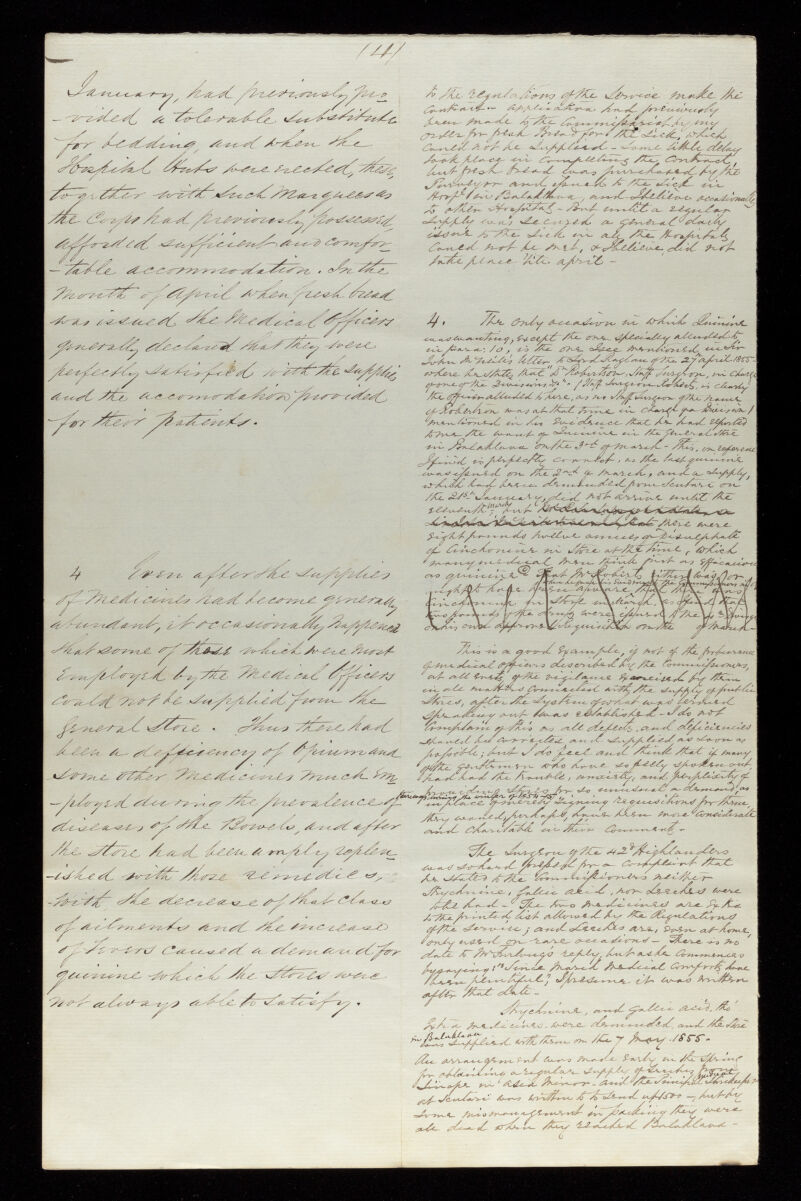 (4)
January, had previously pro
-vided a tolerable substitute
for bedding, and when the
Hospital Huts were erected, these,
together with such Marquees as
the Corps had previously possessed
afforded sufficient and comfor
-table accommodation. In the
Month of April when fresh bread
was issued the Medical Officers
generally declared that they were
perfectly satisfied with the supplies
and the accomodation provided
for their patients.
4 Even after the supplies
of Medicines had become generally
abundant, it occasionally happened
that some of those which were most
employed by the Medical Officers
could not be supplied from the
General Store. Thus there had
been a deficiency of Opium and
some other Medicines much em
-ployed during the prevalence of
diseases of the Bowels, and after
the Store had been amply replen
-ished with those remedies,
with the decrease of that class
of ailments and the increase
of Fevers caused a demand for
quinine which the Stores were
not always able to satisfy.
to the regulations of the Service make the
Contract - application had previously
been made to the Commissariat by my
order for fresh Bread for the Sick, which
could not be supplied - Some little delay
took place in completing the Contract,
but fresh bread was purchased by the
Purveyor and issued to the Sick in
Hospl in Balaklava, and I believe occasionally
to other Hospitals - But until a regular
supply was secured a general daily
issue to the Sick in all the Hospitals
could not be met, & I believe did not
take place 'till april -
4. The only occasion in which Quinine
was wanting, except the one specially alluded to
in para: 10, is the one I see mentioned in Sir
John McNeill's letter to Lord Raglan of the 27 april 1855
where he states that "Dr Robertson, Staff Surgeon, in charge
of one of the Divisions" &c. (Staff Surgeon Roberts, is clearly
the officer alluded to here, as no Staff Surgeon of the name
of Robertson was at that time in charge of a Division)
mentioned in his evidence that he had reported
to me the want of Quinine in the General Store
in Balaklava on the 3rd of march - This, on reference
I find is perfectly correct, as the last quinine
was issued on the 2nd of March, and a supply,
which had been demanded from Scutari on
the 21st January, did not arrive until the
eleventh March; but
there were
eight pounds twelve ounces of Disulphate
of Cinchonine in Store at the time, which
many medical men think just as efficacious
as quinine
This is a good example, if not of the forbearance
of medical officers described by the Commissioners,
at all events of the vigilance exercised by them
in all matters connected with the supply of public
Stores, after the system of what was termed
Speaking out was established - I do not
complain of this as all defects and deficiencies
should be corrected and supplied as soon as
possible; but I do feel and think that if many
of the Gentlemen who have so freely spoken out,
had had the trouble, anxiety, and perplexity of
providing Stores for so unusual a demand, as
during the winter of 1854-55
in place of merely signing requisitions for them,
they would, perhaps, have been more considerate
and charitable in their comments -
The Surgeon of the 42d Highlanders
was so hard pressed for a Complaint that
he states to the Commissioners neither
Strychnine, Gallic acid, nor Leeches were
to be had - The two medicines are Extra
to the printed list allowed by the Regulations
of the Service; and Leeches are, even at home,
only used on rare occasions - There is no
date to Mr Furlong's reply, but as he commences
by saying "Since March medical comforts have
been plentiful, I presume it was written
after that date -
Strychnine, and Gallic acid, tho'
Extra medicines were demanded, and the Store
in Balaklava
was supplied with them on the 7 May 1855 -
An arrangement was made early in the Spring
for obtaining a regular supply of Leeches from
Sinope in Asia Minor - and the Principal Storekeeper
at Scutari was written to to send up 1500 - but by
some mismanagement in packing they were
all dead when they reached Balaklava -